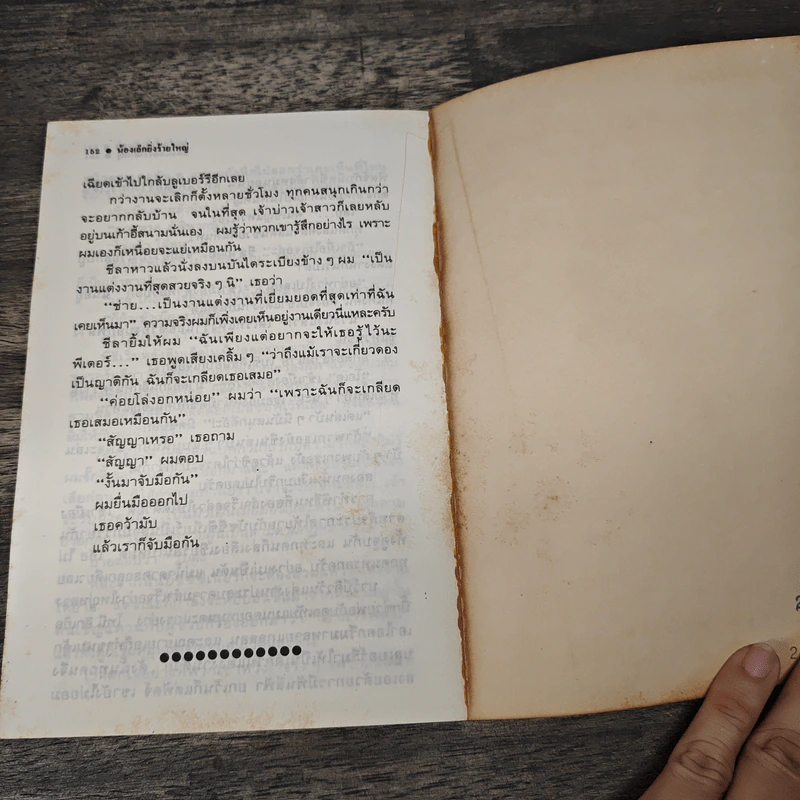 ๖๘๒ ● น้องเล็กยิ่งร้ายใหญ่
เฉียดเข้าไปใกล้บลูเบอร์รีอีกเลย
กว่างานจะเลิกก็ตั้งหลายชั่วโมง ทุกคนสนุกเกินกว่า
จะอยากกลับบ้าน จนในที่สุด เจ้าบ่าวเจ้าสาวก็เลยหลับ
อยู่บนเก้าอี้สนามนั่นเอง ผมรู้ว่าพวกเขารู้สึกอย่างไร เพราะ
ผมเองก็เหนื่อยจะแย่เหมือนกัน
ชีลาหาวแล้วนั่งลงบนบันไดระเบียงข้าง ๆ ผม “เป็น
งานแต่งงานที่สุดสวยจริง ๆ นิ” เธอว่า
“ช่าย...เป็นงานแต่งงานที่เยี่ยมยอดที่สุดเท่าที่ฉัน
เคยเห็นมา” ความจริงผมก็เพิ่งเคยเห็นอยู่งานเดียวนี่แหละครับ
ชีลายิ้มให้ผม “ฉันเพียงแต่อยากจะให้เธอรู้ไว้นะ
พีเตอร์...” เธอพูดเสียงเคลิ้ม ๆ “ว่าถึงแม้เราจะเกี่ยวดอง
เป็นญาติกัน ฉันก็จะเกลียดเธอเสมอ”
“ค่อยโล่งอกหน่อย” ผมว่า “เพราะฉันก็จะเกลียด
เธอเสมอเหมือนกัน”
“สัญญาเหรอ” เธอถาม
“สัญญา” ผมตอบ
“งั้นมาจับมือกัน”
ผมยื่นมือออกไป
เธอคว้ามับ
แล้วเราก็จับมือกัน